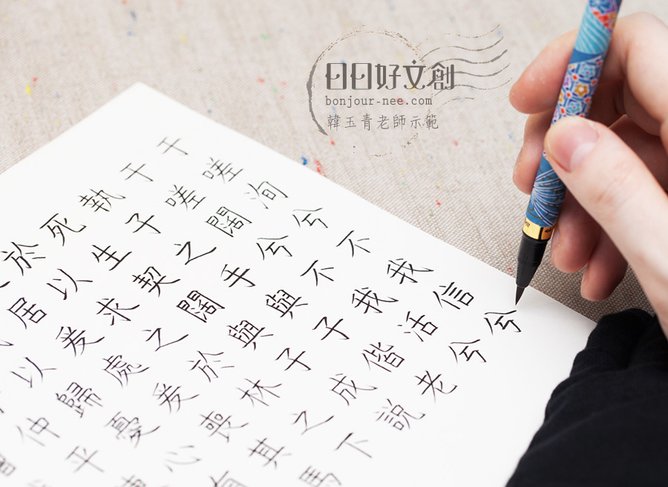 日日好文創
bonjour-nee.com
韓玉青老師示範
于嗟洵兮不我信兮
于嗟闊兮不我活兮
執子之手與子偕老
死生契闊與子成說
於以求之於林之下
居爰處爰喪其馬
以歸憂心有
仲平